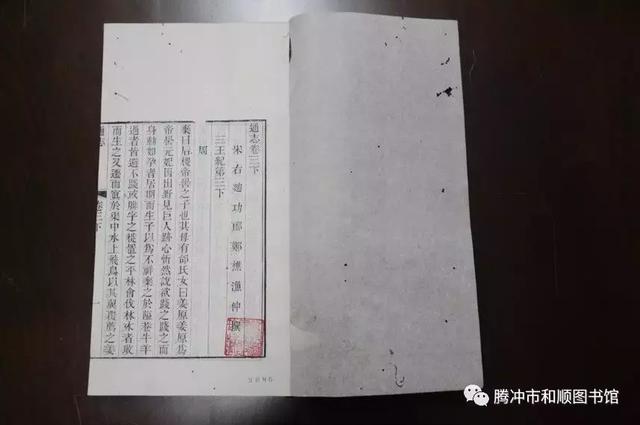 通志卷三下
宋右迪功郎鄭樵漁仲撰
三王紀第三下
周
棄曰后稷帝嚳之子也其母有邰氏女曰姜原姜原爲
帝嚳元妃因出野見巨人跡心忻然說欲踐之踐之而
身動如孕者居期而生子以爲不祥棄之於隘巷牛羊
過者皆避不踐
而生之又遷而寘於渠中冰上飛鳥以其翼覆薦之姜
通志
卷三下
一
腾冲市和顺图书馆